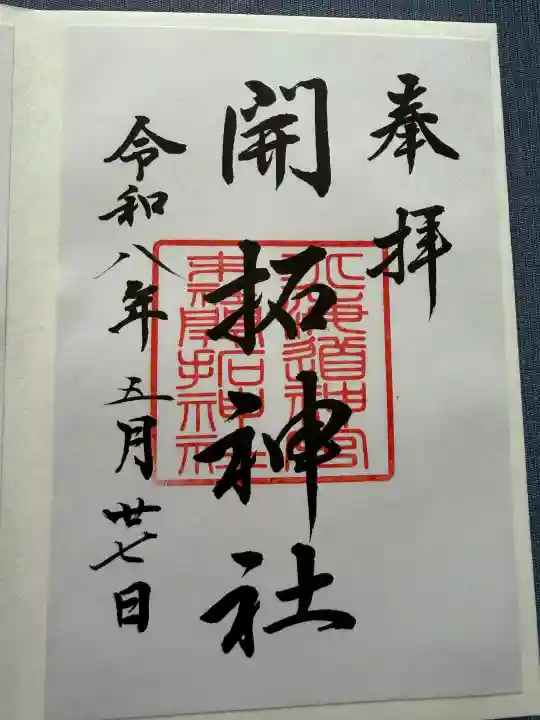 奉拝
開拓神社
北海道神宮
末社開拓神社
令和八年五月廿七日